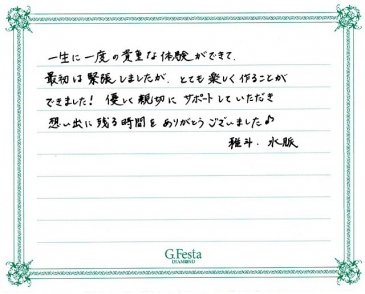 一生に一度の貴重な体験ができて、
最初は緊張しましたが、とても楽しく作ることが
できました！優しく親切にサポートしていただき
想い出に残る時間をありがとうございました♪
雅斗・水脈
G.Festa
DIAMOND